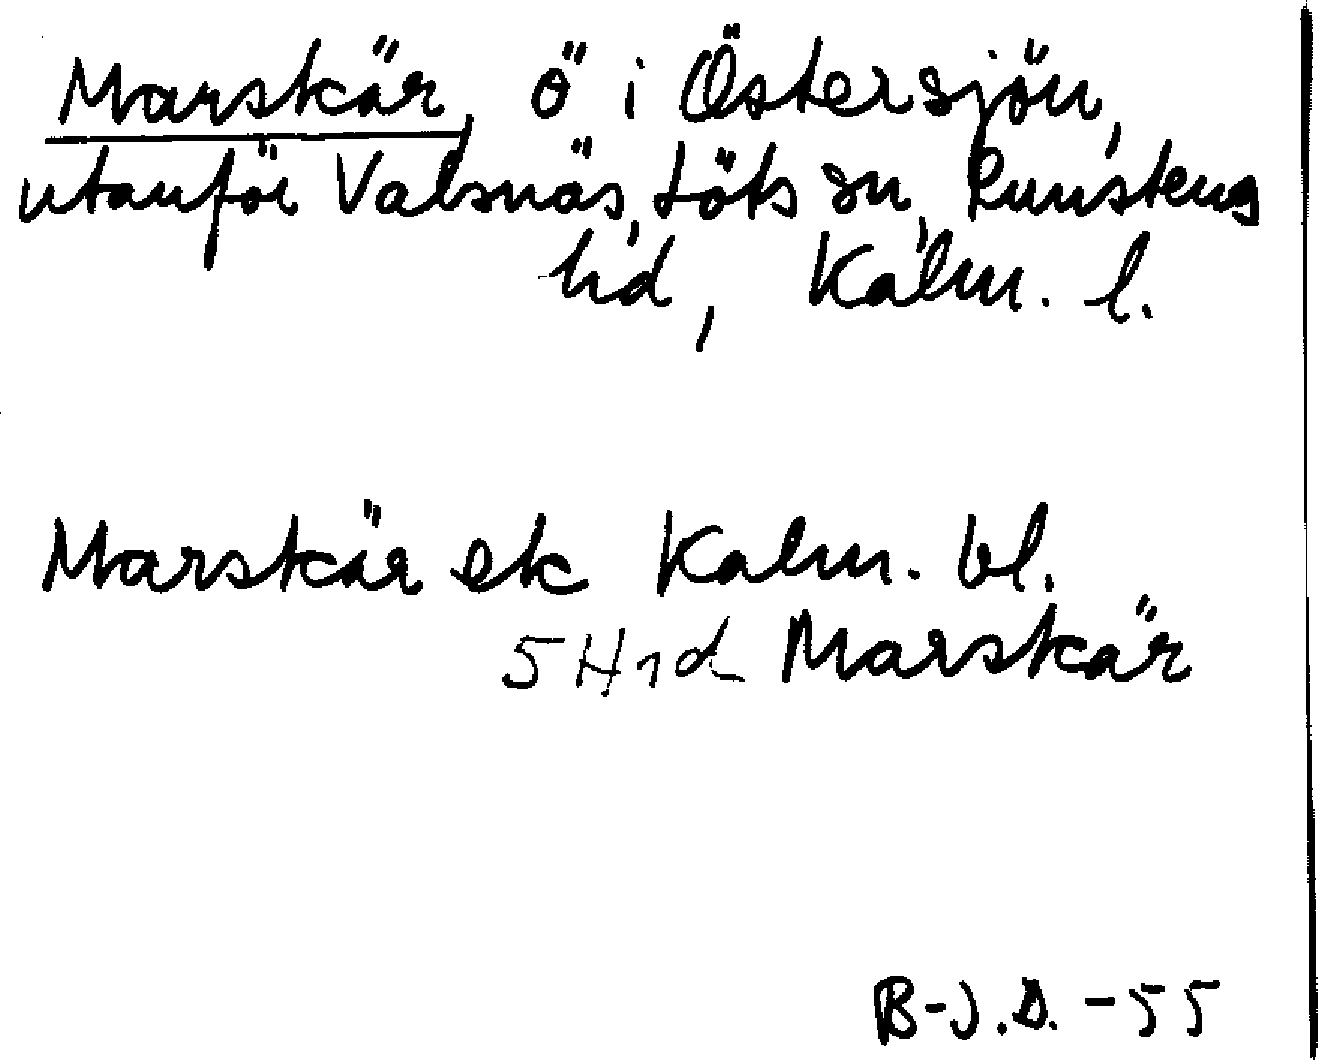 Marskär, ö i Östersjön,
utanför Valsnäs, Löts sn, Runstens
hd, Kalm. l.
Marskär ek Kalm. bl.
5 H 1 d Marskär
B-J.D. - 55